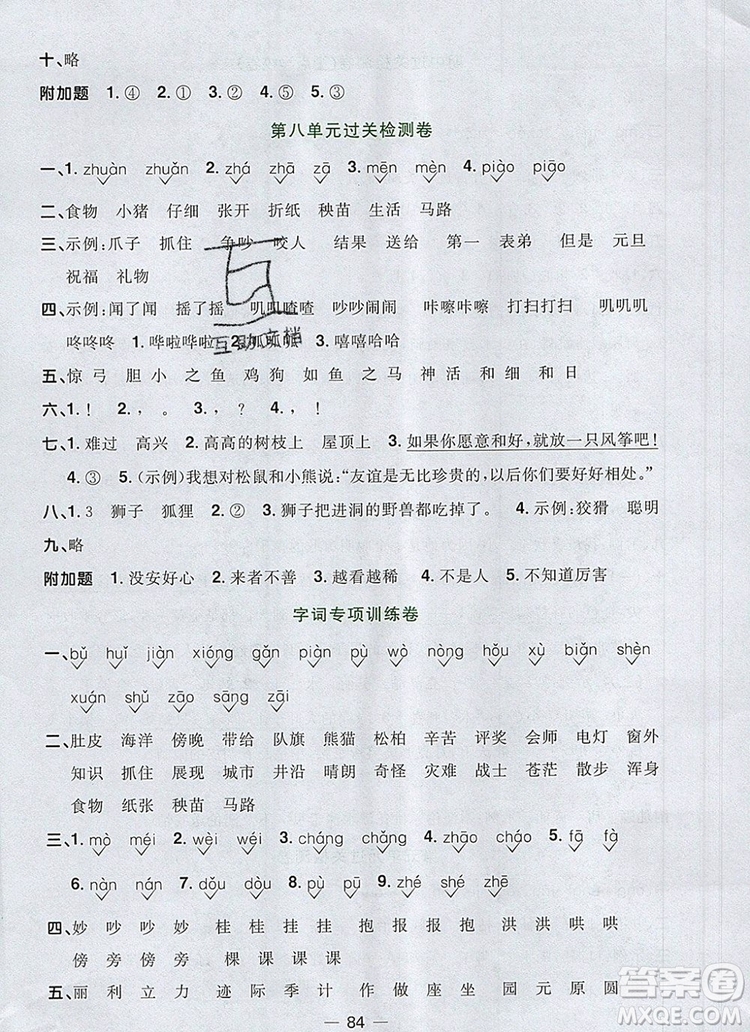 十、略
附加题 1.④ 2.① 3.② 4.⑤ 5.③
第八单元过关检测卷
一、1. zhuàn zhuǎn 2. zhá zhā zā 3. mēn mèn 4. piào piāo
二、食物 小猪 仔细 张开 折纸 秧苗 生活 马路
三、示例:爪子 抓住 争吵 咬人 结果 送给 第一 表弟 但是 元旦
祝福 礼物
四、示例:闻了闻 摇了摇 叽叽喳喳 吵吵闹闹 咔嚓咔嚓 打扫打扫 叽叽叽
咚咚咚 1.哗啦哗啦 2. 3.嘻嘻哈哈
五、惊 弓 胆 小 之 鱼 鸡 狗 如 鱼 之 马 神 活 和 细 和 日
六、1.! 2., 。 3., 。 4., , !
七、1.难过 高兴 2.高高的树枝上 屋顶上 3.如果你愿意和好,就放一只风筝吧!
4.③ 5.(示例)我想对松鼠和小熊说:“友谊是无比珍贵的,以后你们要好好相处。”
八、1.3 狮子 狐狸 2.② 3.狮子把进洞的野兽都吃掉了。 4.示例:狡猾 聪明
九、略
附加题 1.没安好心 2.来者不善 3.越看越稀 4.不是人 5.不知道厉害
字词专项训练卷
一、bǔ huǐ jiàn xióng gǎn piàn pù wò nòng hóu xù biǎn shèn
xuán shǔ zāo sāng zāi
二、肚皮 海洋 傍晚 带给 队旗 熊猫 松柏 辛苦 评奖 会师 电灯 窗外
知识 抓住 展现 城市 井沿 晴朗 奇怪 灾难 战士 苍茫 散步 浑身
食物 纸张 秧苗 马路
三、1. mò méi 2. wèi wéi 3. cháng chǎng 4. zhāo cháo 5. fā fà
6. nàn nán 7. dǒu dōu 8. pù pū 9. zhé shé zhē
四、妙 吵 吵 妙 桂 桂 挂 挂 抱 报 报 抱 洪 洪 哄 哄
傍 旁 傍 旁 棵 课 课 课
五、丽 利 立 力 迹 际 季 计 作 做 座 坐 园 元 原 圆
84
互助文档
答案圈
MXQE.COM